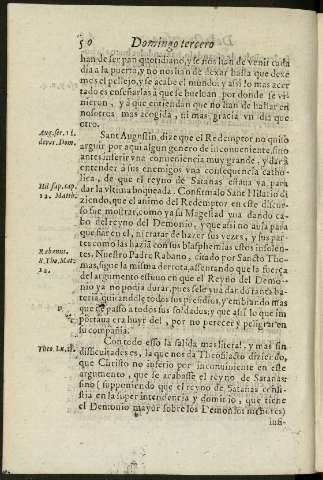 50 Domingo tercero
han de ser pan quotidiano, y se nos han de venir cada
dia a la puerta, y no nos han de dexar hasta que dexe
mos el pellejo, y se acabe el mundo: y assi lo mas acer
tado es enseñarlas à que se buelvan por donde se vi
nieron, y à que entiendan que no han de hallar en
nosotros mas acogida, ni mas gracia un dia que
otro.
Sant Augustin, dize que el Redemptor no quiso
arguir por aqui algun genero de inconveniente, sino
antes inferir una conveniencia muy grande, y dar à
entender à sus enemigos una consequencia catho-
lica, de que el reyno de Satanas estava ya para
dar la ultima boqueada. Confirmalo Sanc Hilario di
ziendo, que el animo del Redemptor en este discur
so fue mostrar, como ya su Magestad yua dando ca-
bo del reyno del Demonio, y que assi no auia para
que fiar en el, ni tratar de hazer sus vezes, y sus par-
tes como las hazia con sus blasphemias estos insolen-
tes. Nuestro Padre Rabano, citado por Sancto Tho-
mas, sigue la misma derrota, assentando que la fuerça
del argumento estuuo en que el Reyno del Demo-
nio ya no podia durar, pues se le yua dando tanta ba-
teria, quitandole todos sus presidios, y embiando mas
que de passo a todos sus soldados; y que assi lo que im
portaua era huyr del, por no perecer y peligrar en
su compañia.
Con todo esso la salida mas literal, y mas sin
dificultades es, la que nos da Theofilacto diziendo,
que Christo no inferio por inconuiniente en este
argumento, que se acabasse el reyno de Satanas:
sino (supponiendo que el reyno de Satanas consi-
stia en la super intendencia y dominio, que tiene
el Demonio mayor sobre los Demonios menores)
Aug. ser. 11.
de ver. Dom.
Hil. sup. cap.
12. Matth.
Rabanus.
S. Tho. Mat.
12.
Theo. Lu. 11.